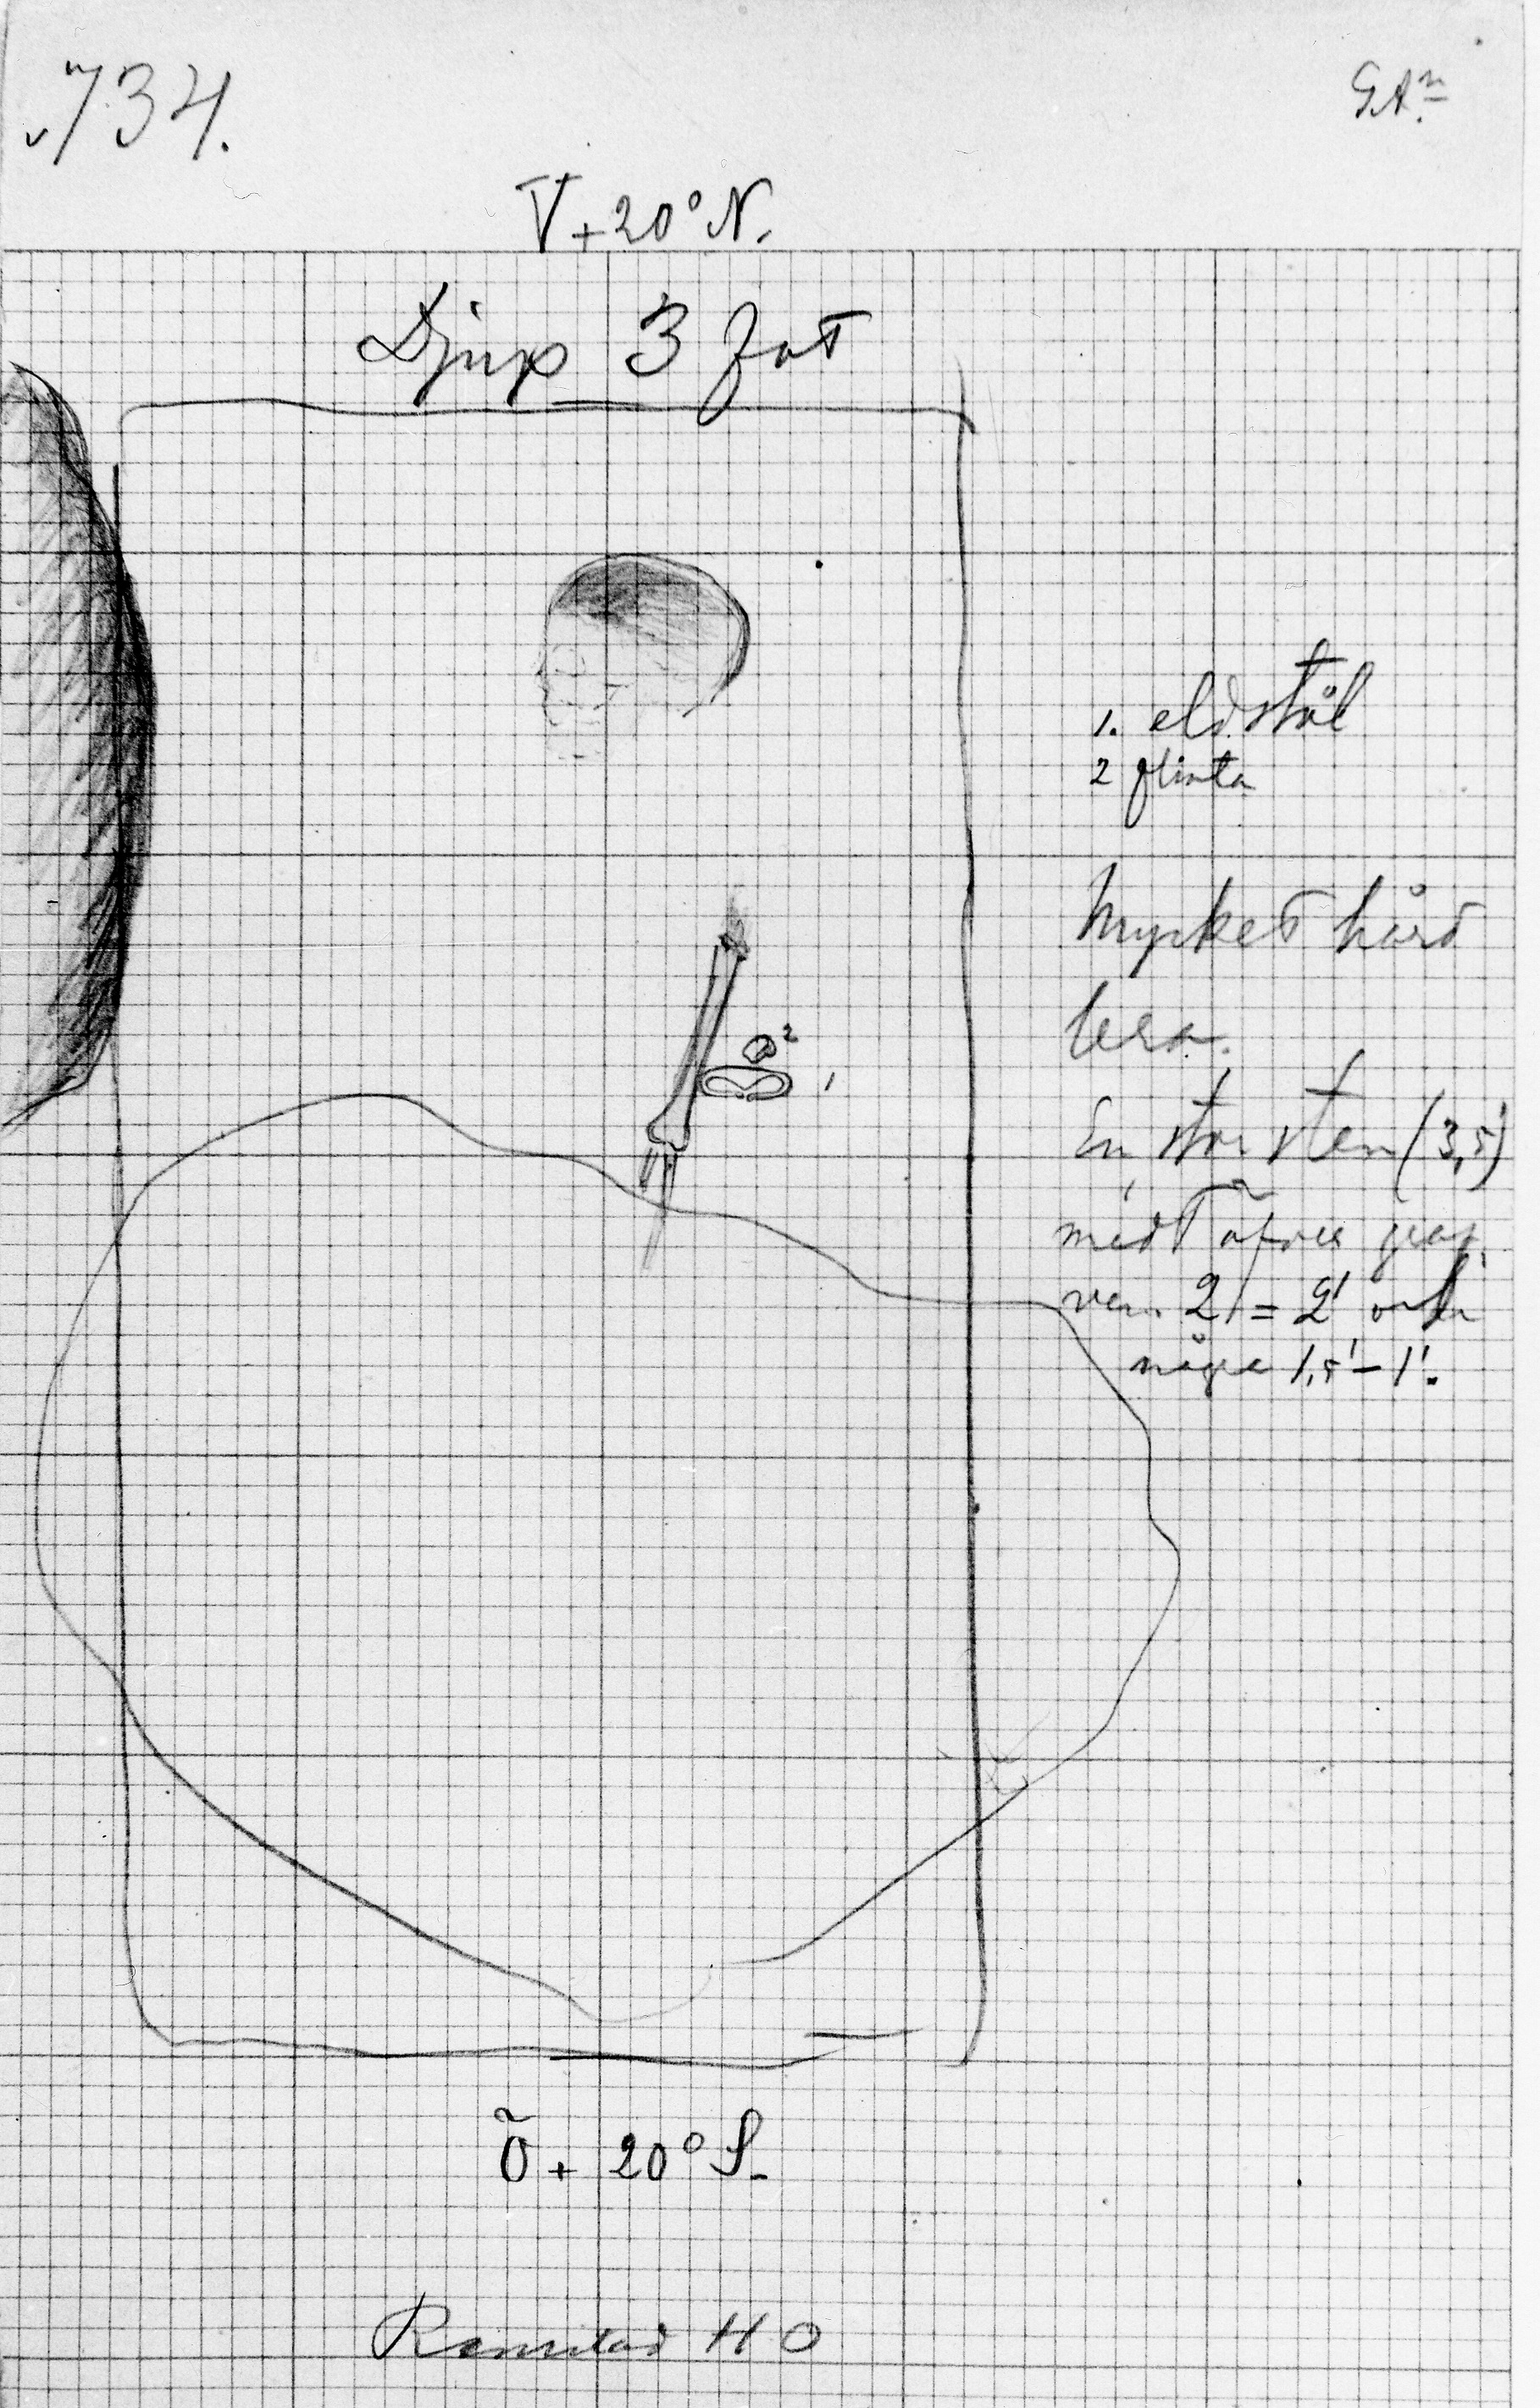 734.
GAn
V + 20° N.
Djup 3 fot
1. eldstål
2 flinta
Mycket hård
lera.
2
1
En stor sten (3,5')
midt öfver graf
ven. 2' = 2' och
några 1,5' – 1'.
Ö + 20° S.
H O